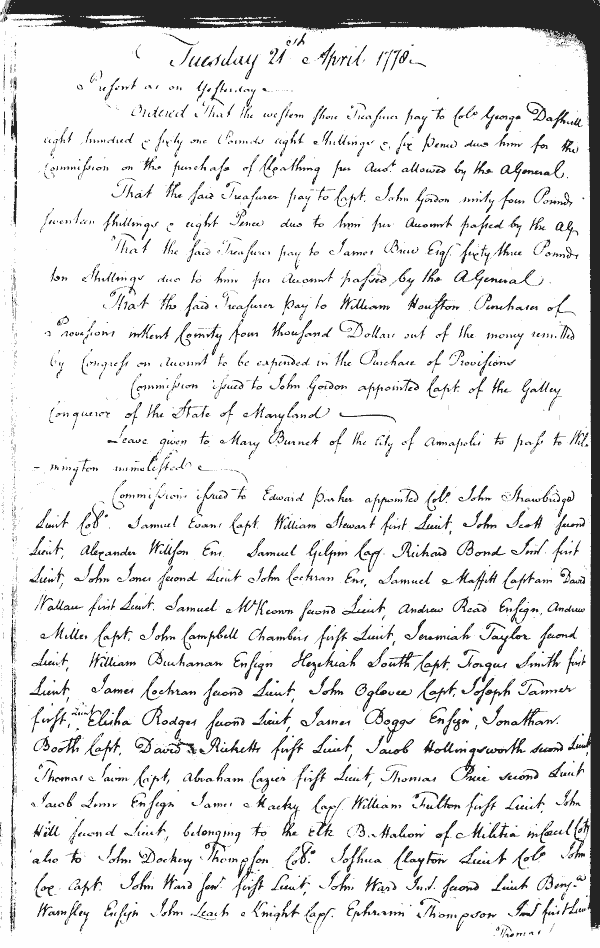 Tuesday 21st April 1778
Present as on Yesterday
Ordered That the western shore Treasurer pay to Colo. George Dashiell
eight hundred & sixty one Pounds eight shillings & six Pence due him for the
Commission on the purchase of Cloathing per Acct. allowed by the AGeneral.
That the said Treasurer pay to Capt. John Gordon ninety four Pounds
seventeen shillings & eight Pence due to him per Account passed by the AG
That the said Treasurer pay to James Brice Esqr. sixty three Pounds
ten shillings due to him per Account passed by the AGeneral.
That the said Treasurer pay to William Houston Purchaser of
Provisions in Kent County four thousand Dollars out of the money remitted
by Congress on Account to be expended in the Purchase of Provisions
Commission issued to John Gordon appointed Capt. of the Galley
Conqueror of the State of Maryland
Leave given to Mary Burnet of the City of Annapolis to pass to Wil-
-mington unmolested
Commissions issued to Edward Parker appointed Colo. John Strawbridge
Lieut Colo. Samuel Evans Capt. William Stewart first Lieut, John Scott second
Lieut, Alexander Willson Ens. Samuel Gilpin Cap. Richard Bond Junr. first
Lieut, John Jones second Lieut John Cochran Ens, Samuel Maffitt Captain David
Wallace first Lieut. Samuel McKeown second Lieut, Andrew Read Ensign, Andrew
Miller Capt. John Campbell Chambers first Lieut, Jeremiah Taylor second
Lieut, William Buchanan Ensign Hezekiah South Capt, Fargus Smith first
Lieut, James Cochran second Lieut, John Oglevee Capt, Joseph Tanner
first Lieut Elisha Rodges second Lieut, James Boggs Ensign, Jonathan
Booth Capt, David Ricketts first Lieut, Jacob Hollingsworth second Lieut
Thomas Savin Capt, Abraham Cazier first Lieut, Thomas Price second Lieut
Jacob Ensign James Macky Cap. William Fulton first Lieut, John
Hill second Lieut, belonging to the Elk Battalion of Militia in Cecil Coty
also to John Dockery Thompson Colo. Joshua Clayton Lieut Colo. John
Cox Capt. John Ward senr. first Lieut, John Ward Junr. second Lieut Benja.
Wamsley Ensign John Leach Knight Cap. Ephraim Thompson Junr first Lieut
Thomas